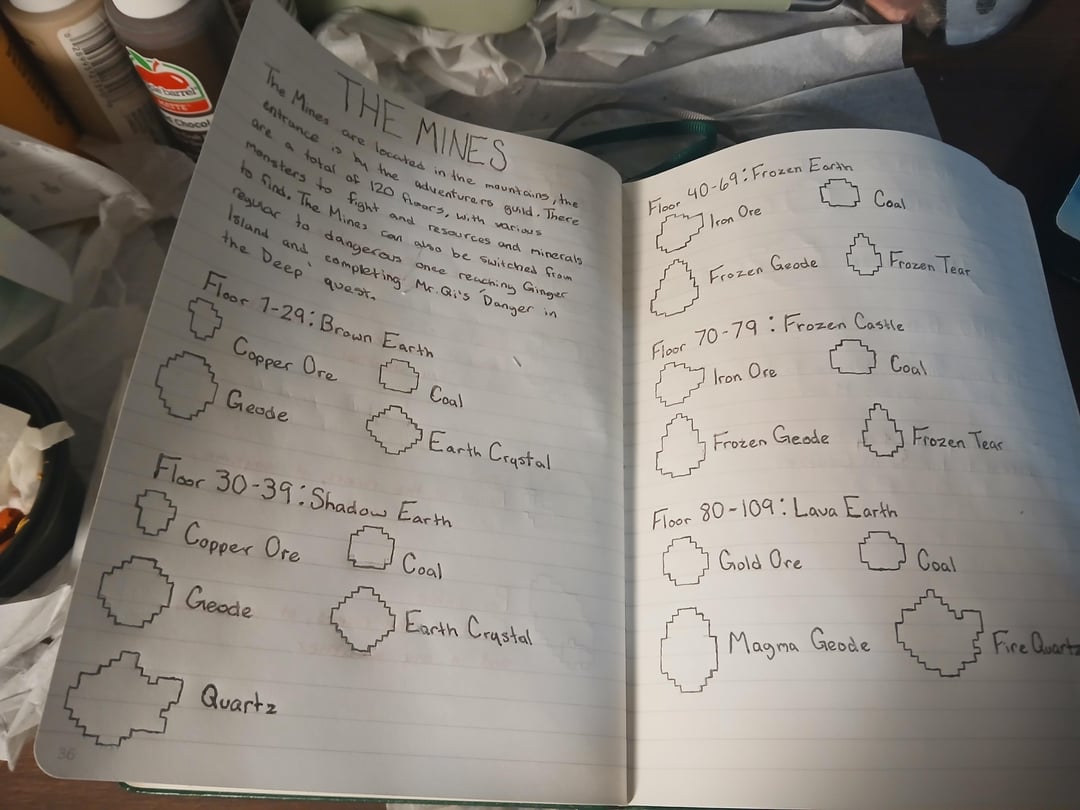 THE MINES
The Mines are located in the mountains, the
entrance is by the adventurers guild. There
are a total of 120 floors, with various
monsters to fight and resources and minerals
to find. The Mines can also be switched from
regular to dangerous once reaching Ginger
Island and completing Mr.Qi's 'Danger in
the Deep' quest.
Floor 1-29: Brown Earth
Copper Ore
Coal
Geode
Earth Crystal
Floor 30-39: Shadow Earth
Copper Ore
Coal
Geode
Earth Crystal
Quartz
36
Floor 40-69: Frozen Earth
Iron Ore
Coal
Frozen Geode
Frozen Tear
Floor 70-79: Frozen Castle
Iron Ore
Coal
Frozen Geode
Frozen Tear
Floor 80-109: Lava Earth
Gold Ore
Coal
Magma Geode
Fire Quartz
barrel